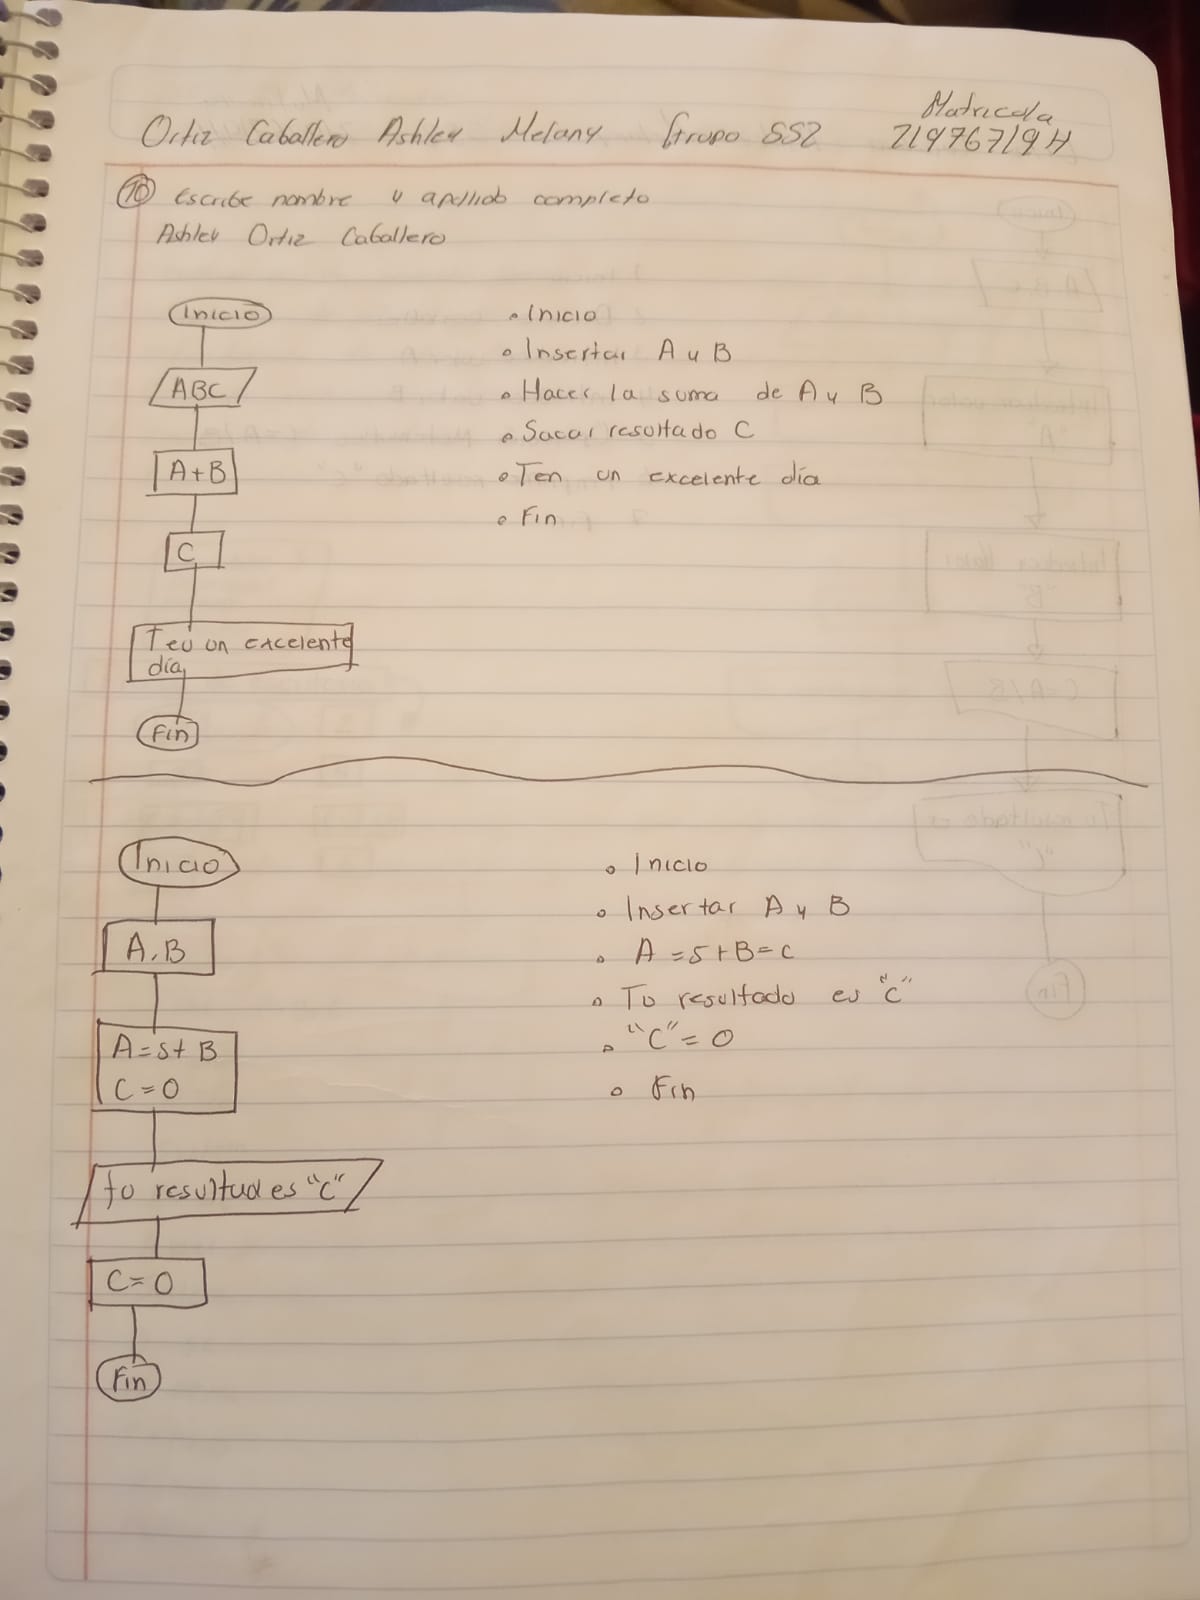 Matricula
Ortiz Caballero Ashley Melany Grupo 552 219767194
⑩ Escribe nombre y apellido completo
Ashley Ortiz Caballero
Inicio
ABC
A+B
C
Ten un excelente
día
Fin
• Inicio
• Insertar A y B
• Hacer la suma de A y B
• Sacar resultado C
• Ten un excelente día
• Fin
Inicio
A,B
A=5+B
C=0
tu resultud es "C"
C=0
Fin
• Inicio
• Insertar A y B
• A=5+B=C
• Tu resultado es "C"
• "C"=0
• Fin